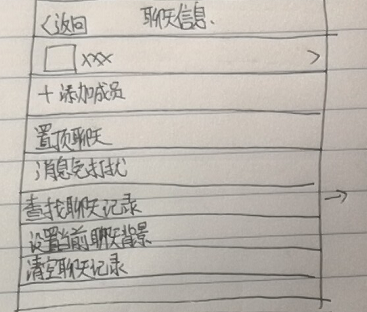 <返回 聊天信息.
xxx >
+ 添加成员
置顶聊天
消息免打扰
查找聊天记录 →
设置当前聊天背景
清空聊天记录